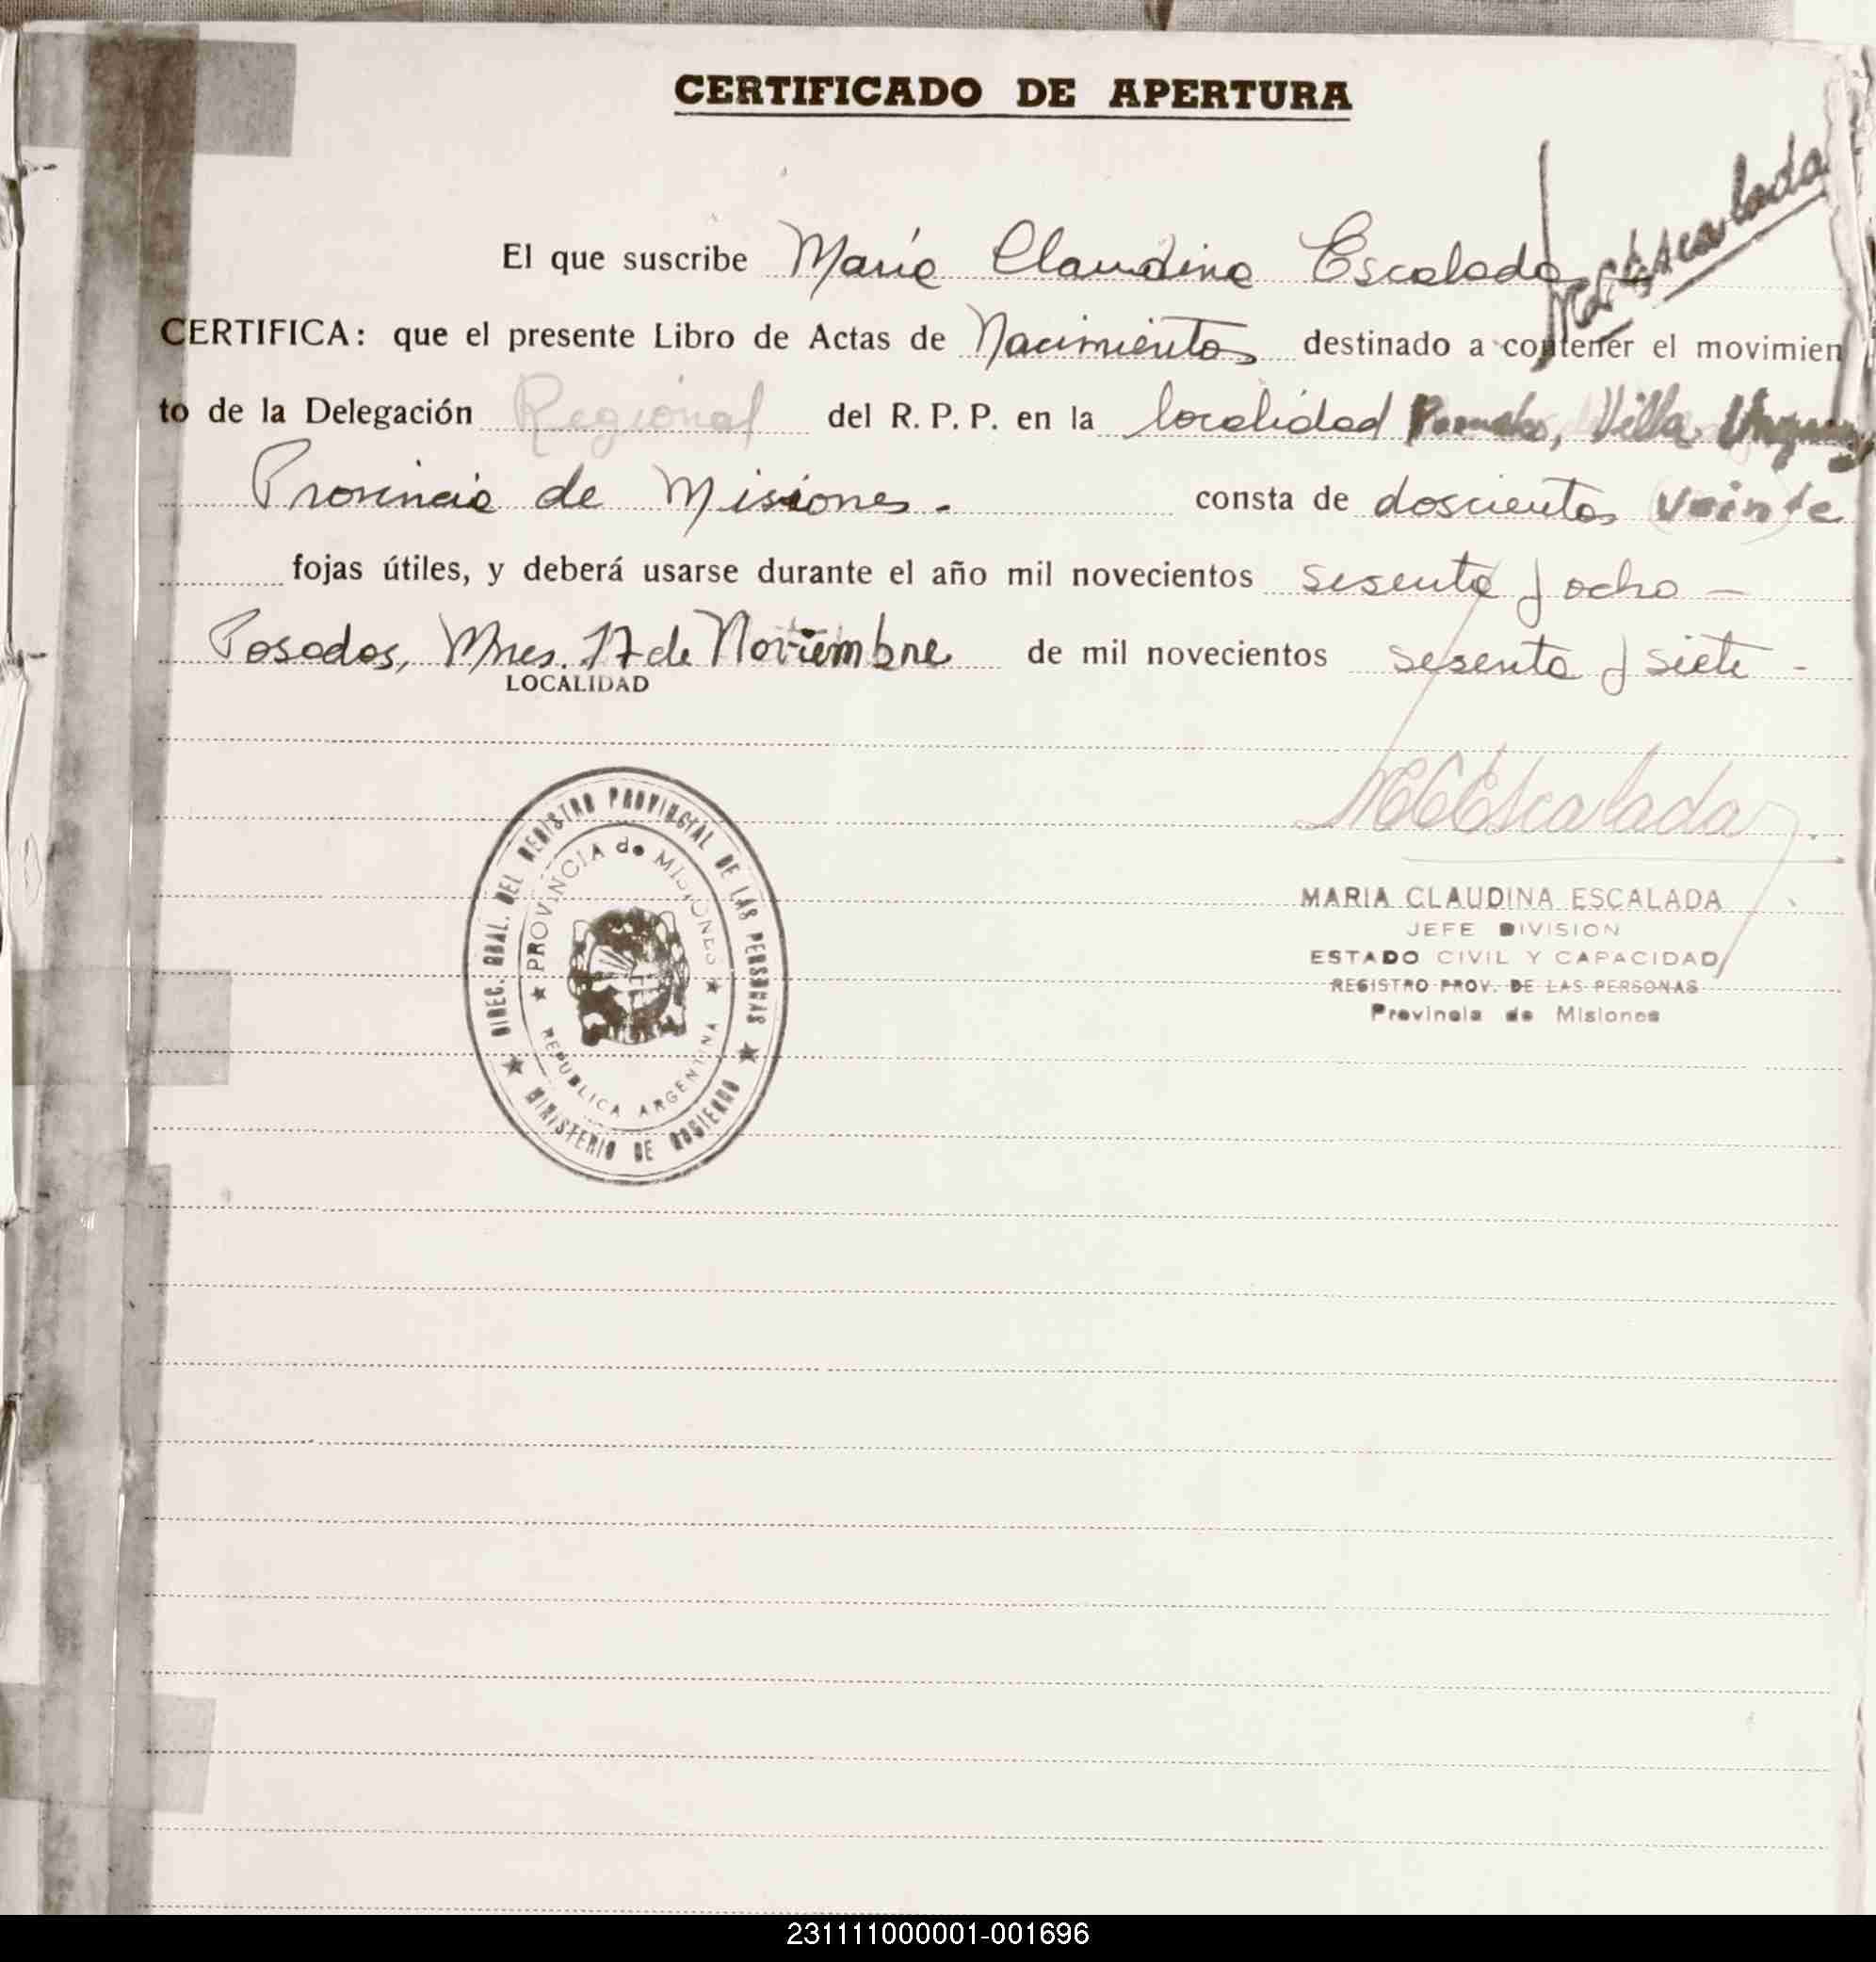 CERTIFICADO DE APERTURA
El que suscribe María Claudina Escalada
M C Escalada
CERTIFICA: que el presente Libro de Actas de Nacimientos destinado a contener el movimien
to de la Delegación Regional del R. P. P. en la localidad Villa
Provincia de Misiones. consta de doscientos (veinte)
fojas útiles, y deberá usarse durante el año mil novecientos sesenta y ocho —
Posadas, Mnes. 17 de Noviembre de mil novecientos sesenta y siete -
LOCALIDAD
MCEscalada
DIREC. GRAL. DEL REGISTRO PROVINCIAL DE LAS PERSONAS
PROVINCIA de MISIONES
REPUBLICA ARGENTINA
MINISTERIO DE GOBIERNO
MARIA CLAUDINA ESCALADA
JEFE DIVISION
ESTADO CIVIL Y CAPACIDAD
REGISTRO PROV. DE LAS PERSONAS
Provincia de Misiones
231111000001-001696